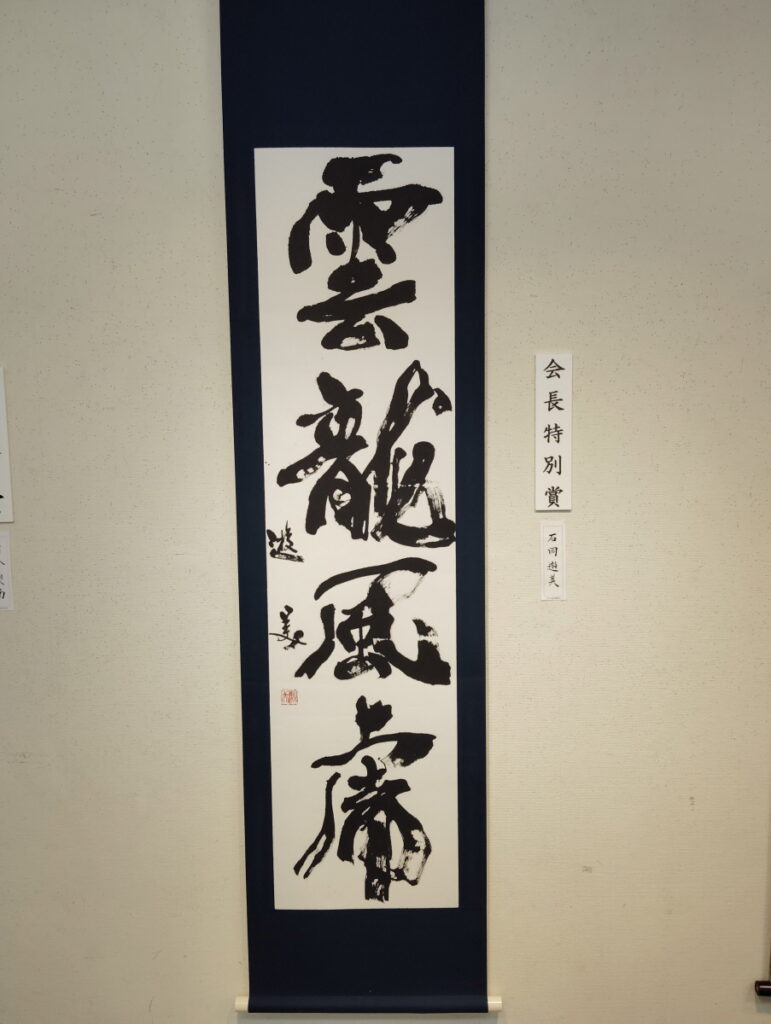 雲龍風虎
遊美
会長特別賞
石岡遊美